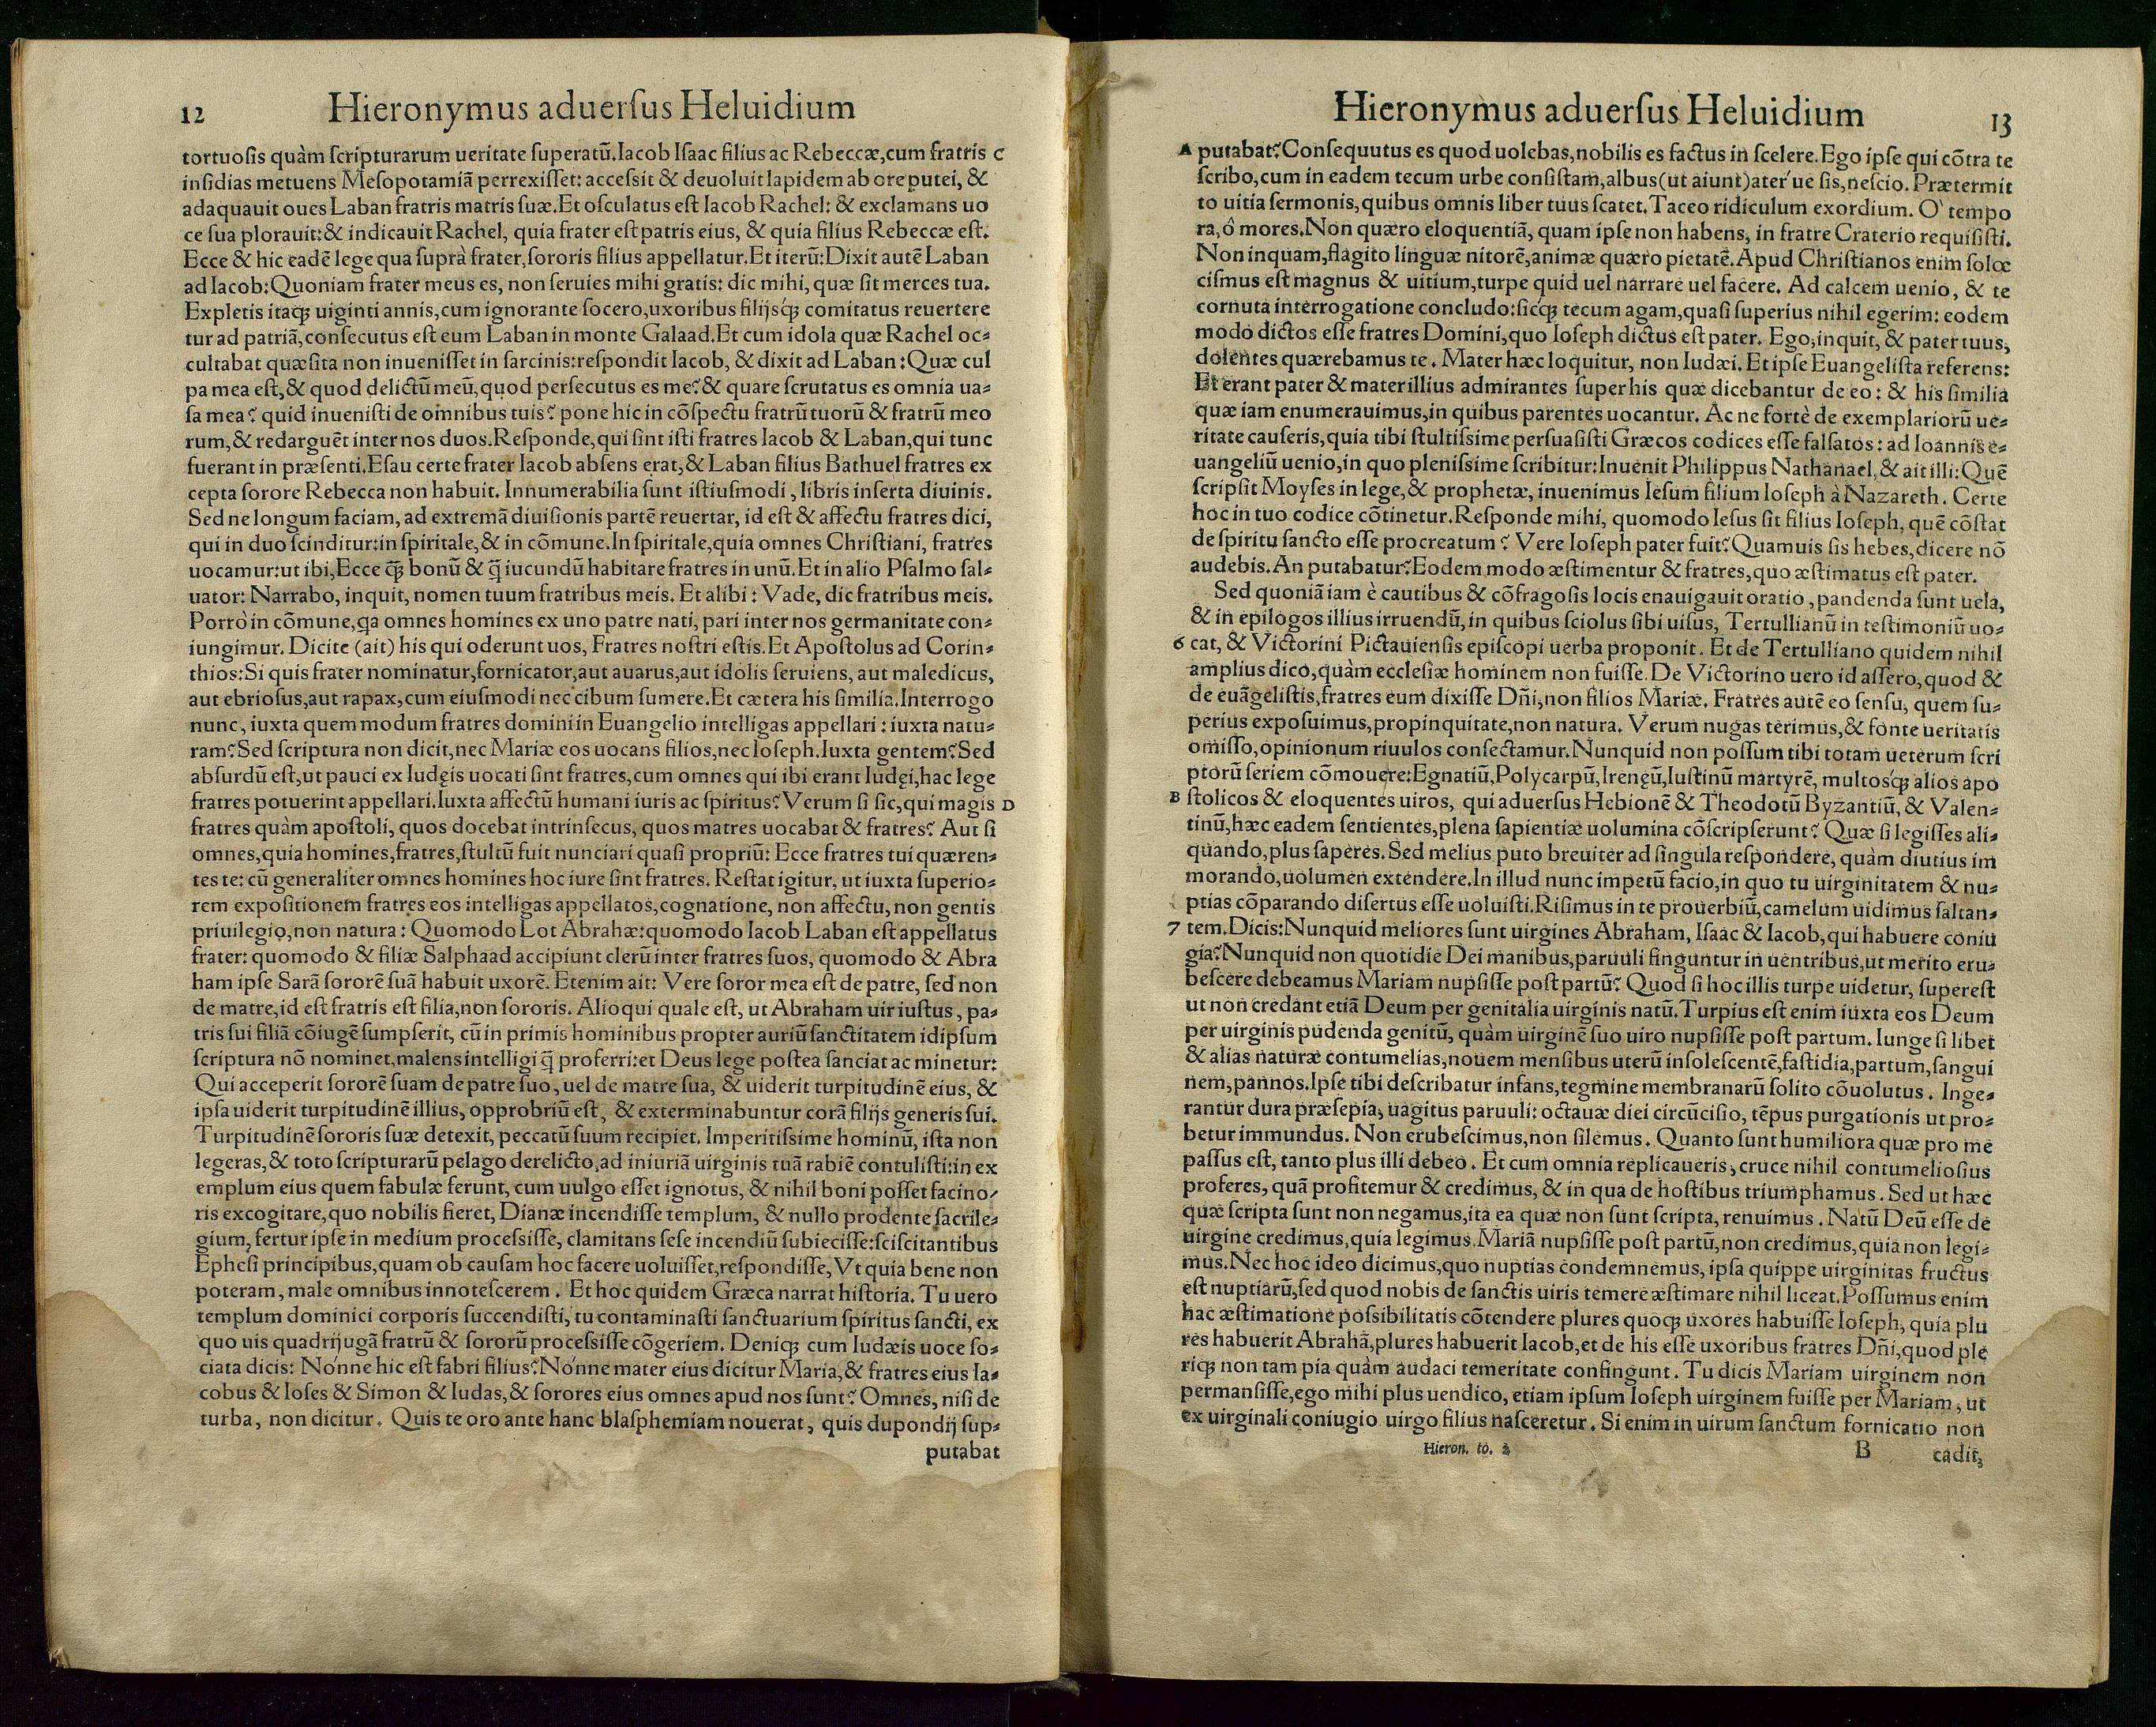 12 Hieronymus aduerſus Heluidium
tortuoſis quàm ſcripturarum ueritate ſuperatū. Iacob Iſaac filius ac Rebeccæ, cum fratris C
inſidias metuens Meſopotamiā perrexiſſet: acceſsit & deuoluit lapidem ab ore putei, &
adaquauit oues Laban fratris matris ſuæ. Et oſculatus eſt Iacob Rachel: & exclamans uo
ce ſua plorauit: & indicauit Rachel, quia frater eſt patris eius, & quia filius Rebeccæ eſt.
Ecce & hic eadē lege qua ſuprà frater, ſororis filius appellatur. Et iterū: Dixit autē Laban
ad Iacob: Quoniam frater meus es, non ſeruies mihi gratis: dic mihi, quæ ſit merces tua.
Expletis itaq; uiginti annis, cum ignorante ſocero, uxoribus filijsq́; comitatus reuertere
tur ad patriā, conſecutus eſt eum Laban in monte Galaad. Et cum idola quæ Rachel oc-
cultabat quæſita non inueniſſet in ſarcinis: reſpondit Iacob, & dixit ad Laban: Quæ cul
pa mea eſt, & quod delictū meū, quod perſecutus es me? & quare ſcrutatus es omnia ua-
ſa mea? quid inueniſti de omnibus tuis? pone hic in cōſpectu fratrū tuorū & fratrū meo
rum, & redarguēt inter nos duos. Reſponde, qui ſint iſti fratres Iacob & Laban, qui tunc
fuerant in præſenti. Eſau certe frater Iacob abſens erat, & Laban filius Bathuel fratres ex
cepta ſorore Rebecca non habuit. Innumerabilia ſunt iſtiuſmodi, libris inſerta diuinis.
Sed ne longum faciam, ad extremā diuiſionis partē reuertar, id eſt & affectu fratres dici,
qui in duo ſcinditur: in ſpiritale, & in cōmune. In ſpiritale, quia omnes Chriſtiani, fratres
uocamur: ut ibi, Ecce q̄; bonū & q̄ iucundū habitare fratres in unū. Et in alio Pſalmo ſal-
uator: Narrabo, inquit, nomen tuum fratribus meis. Et alibi: Vade, dic fratribus meis.
Porrò in cōmune, ꝗa omnes homines ex uno patre nati, pari inter nos germanitate con-
iungimur. Dicite (ait) his qui oderunt uos, Fratres noſtri eſtis. Et Apoſtolus ad Corin-
thios: Si quis frater nominatur, fornicator, aut auarus, aut idolis ſeruiens, aut maledicus,
aut ebrioſus, aut rapax, cum eiuſmodi nec cibum ſumere. Et cætera his ſimilia. Interrogo
nunc, iuxta quem modum fratres domini in Euangelio intelligas appellari: iuxta natu-
ram? Sed ſcriptura non dicit, nec Mariæ eos uocans filios, nec Ioſeph. Iuxta gentem? Sed
abſurdū eſt, ut pauci ex Iudęis uocati ſint fratres, cum omnes qui ibi erant Iudęi, hac lege
fratres potuerint appellari. Iuxta affectū humani iuris ac ſpiritus? Verum ſi ſic, qui magis D
fratres quàm apoſtoli, quos docebat intrinſecus, quos matres uocabat & fratres? Aut ſi
omnes, quia homines, fratres, ſtultū fuit nunciari quaſi propriū: Ecce fratres tui quæren-
tes te: cū generaliter omnes homines hoc iure ſint fratres. Reſtat igitur, ut iuxta ſuperio-
rem expoſitionem fratres eos intelligas appellatos, cognatione, non affectu, non gentis
priuilegio, non natura: Quomodo Lot Abrahæ: quomodo Iacob Laban eſt appellatus
frater: quomodo & filiæ Salphaad accipiunt clerū inter fratres ſuos, quomodo & Abra
ham ipſe Sarā ſororē ſuā habuit uxorē. Etenim ait: Vere ſoror mea eſt de patre, ſed non
de matre, id eſt fratris eſt filia, non ſororis. Alioqui quale eſt, ut Abraham uir iuſtus, pa-
tris ſui filiā cōiugē ſumpſerit, cū in primis hominibus propter auriū ſanctitatem idipſum
ſcriptura nō nominet, malens intelligi q̄ proferri: et Deus lege poſtea ſanciat ac minetur:
Qui acceperit ſororē ſuam de patre ſuo, uel de matre ſua, & uiderit turpitudinē eius, &
ipſa uiderit turpitudinē illius, opprobriū eſt, & exterminabuntur corā filijs generis ſui.
Turpitudinē ſororis ſuæ detexit, peccatū ſuum recipiet. Imperitiſsime hominū, iſta non
legeras, & toto ſcripturarū pelago derelicto, ad iniuriā uirginis tuā rabiē contuliſti: in ex
emplum eius quem fabulæ ferunt, cum uulgo eſſet ignotus, & nihil boni poſſet facino-
ris excogitare, quo nobilis fieret, Dianæ incendiſſe templum, & nullo prodente ſacrile-
gium, fertur ipſe in medium proceſsiſſe, clamitans ſeſe incendiū ſubieciſſe: ſciſcitantibus
Epheſi principibus, quam ob cauſam hoc facere uoluiſſet, reſpondiſſe, Vt quia bene non
poteram, male omnibus innoteſcerem. Et hoc quidem Græca narrat hiſtoria. Tu uero
templum dominici corporis ſuccendiſti, tu contaminaſti ſanctuarium ſpiritus ſancti, ex
quo uis quadrijugā fratrū & ſororū proceſsiſſe cōgeriem. Deniq; cum Iudæis uoce ſo-
ciata dicis: Nónne hic eſt fabri filius? Nónne mater eius dicitur Maria, & fratres eius Ia-
cobus & Ioſes & Simon & Iudas, & ſorores eius omnes apud nos ſunt? Omnes, niſi de
turba, non dicitur. Quis te oro ante hanc blaſphemiam nouerat, quis dupondij ſup-
putabat
Hieronymus aduerſus Heluidium 13
A putabat? Conſequutus es quod uolebas, nobilis es factus in ſcelere. Ego ipſe qui cōtra te
ſcribo, cum in eadem tecum urbe conſiſtam, albus (ut aiunt) ater´ue ſis, neſcio. Prætermit
to uitia ſermonis, quibus omnis liber tuus ſcatet. Taceo ridiculum exordium. Ò tempo
ra, ô mores. Non quæro eloquentiā, quam ipſe non habens, in fratre Craterio requiſiſti.
Non inquam, flagito linguæ nitorē, animæ quæro pietatē. Apud Chriſtianos enim ſolœ
ciſmus eſt magnus & uitium, turpe quid uel narrare uel facere. Ad calcem uenio, & te
cornuta interrogatione concludo: ſicq́; tecum agam, quaſi ſuperius nihil egerim: eodem
modo dictos eſſe fratres Domini, quo Ioſeph dictus eſt pater. Ego, inquit, & pater tuus,
dolentes quærebamus te. Mater hæc loquitur, non Iudæi. Et ipſe Euangeliſta referens:
Et erant pater & mater illius admirantes ſuper his quæ dicebantur de eo: & his ſimilia
quæ iam enumerauimus, in quibus parentes uocantur. Ac ne fortè de exemplariorū ue-
ritate cauſeris, quia tibi ſtultiſsime perſuaſiſti Græcos codices eſſe falſatos: ad Ioannis e-
uangeliū uenio, in quo pleniſsime ſcribitur: Inuenit Philippus Nathanael, & ait illi: Quē
ſcripſit Moyſes in lege, & prophetæ, inuenimus Ieſum filium Ioſeph à Nazareth. Certe
hoc in tuo codice cōtinetur. Reſponde mihi, quomodo Ieſus ſit filius Ioſeph, quē cōſtat
de ſpiritu ſancto eſſe procreatum? Vere Ioſeph pater fuit? Quamuis ſis hebes, dicere nō
audebis. An putabatur? Eodem modo æſtimentur & fratres, quo æſtimatus eſt pater.
Sed quoniā iam è cautibus & cōfragoſis locis enauigauit oratio, pandenda ſunt uela,
& in epilogos illius irruendū, in quibus ſciolus ſibi uiſus, Tertullianū in teſtimoniū uo-
6 cat, & Victorini Pictauienſis epiſcopi uerba proponit. Et de Tertulliano quidem nihil
amplius dico, quàm eccleſiæ hominem non fuiſſe. De Victorino uero id aſſero, quod &
de euāgeliſtis, fratres eum dixiſſe Dñi, non filios Mariæ. Fratres autē eo ſenſu, quem ſu-
perius expoſuimus, propinquitate, non natura. Verum nugas terimus, & fonte ueritatis
omiſſo, opinionum riuulos conſectamur. Nunquid non poſſum tibi totam ueterum ſcri
ptorū ſeriem cōmouere: Egnatiū, Polycarpū, Irenęū, Iuſtinū martyrē, multosq́; alios apo
B ſtolicos & eloquentes uiros, qui aduerſus Hebionē & Theodotū Byzantiū, & Valen-
tinū, hæc eadem ſentientes, plena ſapientiæ uolumina cōſcripſerunt? Quæ ſi legiſſes ali-
quando, plus ſaperes. Sed melius puto breuiter ad ſingula reſpondere, quàm diutius im
morando, uolumen extendere. In illud nunc impetū facio, in quo tu uirginitatem & nu-
ptias cōparando diſertus eſſe uoluiſti. Riſimus in te prouerbiū, camelum uidimus ſaltan-
7 tem. Dicis: Nunquid meliores ſunt uirgines Abraham, Iſaac & Iacob, qui habuere coniu
gia? Nunquid non quotidie Dei manibus, paruuli finguntur in uentribus, ut merito eru-
beſcere debeamus Mariam nupſiſſe poſt partū? Quod ſi hoc illis turpe uidetur, ſupereſt
ut non credant etiā Deum per genitalia uirginis natū. Turpius eſt enim iuxta eos Deum
per uirginis pudenda genitū, quàm uirginē ſuo uiro nupſiſſe poſt partum. Iunge ſi libet
& alias naturæ contumelias, nouem menſibus uterū inſoleſcentē, faſtidia, partum, ſangui
nem, pannos. Ipſe tibi deſcribatur infans, tegmine membranarū ſolito cōuolutus. Inge-
rantur dura præſepia, uagitus paruuli: octauæ diei circūciſio, tēpus purgationis ut pro-
betur immundus. Non erubeſcimus, non ſilemus. Quanto ſunt humiliora quæ pro me
paſſus eſt, tanto plus illi debeo. Et cum omnia replicaueris, cruce nihil contumelioſius
proferes, quā profitemur & credimus, & in qua de hoſtibus triumphamus. Sed ut hæc
quæ ſcripta ſunt non negamus, ita ea quæ non ſunt ſcripta, renuimus. Natū Deū eſſe de
uirgine credimus, quia legimus. Mariā nupſiſſe poſt partū, non credimus, quia non legi-
mus. Nec hoc ideo dicimus, quo nuptias condemnemus, ipſa quippe uirginitas fructus
eſt nuptiarū, ſed quod nobis de ſanctis uiris temere æſtimare nihil liceat. Poſſumus enim
hac æſtimatione poſsibilitatis cōtendere plures quoq; uxores habuiſſe Ioſeph, quia plu
res habuerit Abrahā, plures habuerit Iacob, et de his eſſe uxoribus fratres Dñi, quod ple
riq; non tam pia quàm audaci temeritate confingunt. Tu dicis Mariam uirginem non
permanſiſſe, ego mihi plus uendico, etiam ipſum Ioſeph uirginem fuiſſe per Mariam, ut
ex uirginali coniugio uirgo filius naſceretur. Si enim in uirum ſanctum fornicatio non
Hieron. to. 2 B cadit,